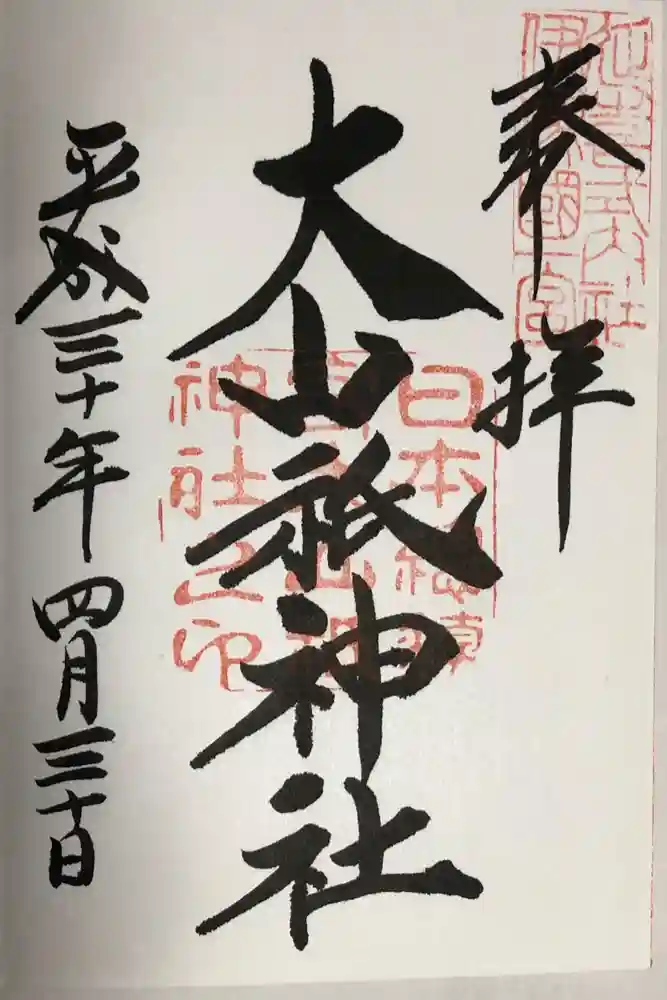 奉拝
大山祇神社
平成三十年四月三十日
伊豫國一宮
日本總鎮
守大山祇
神社之印